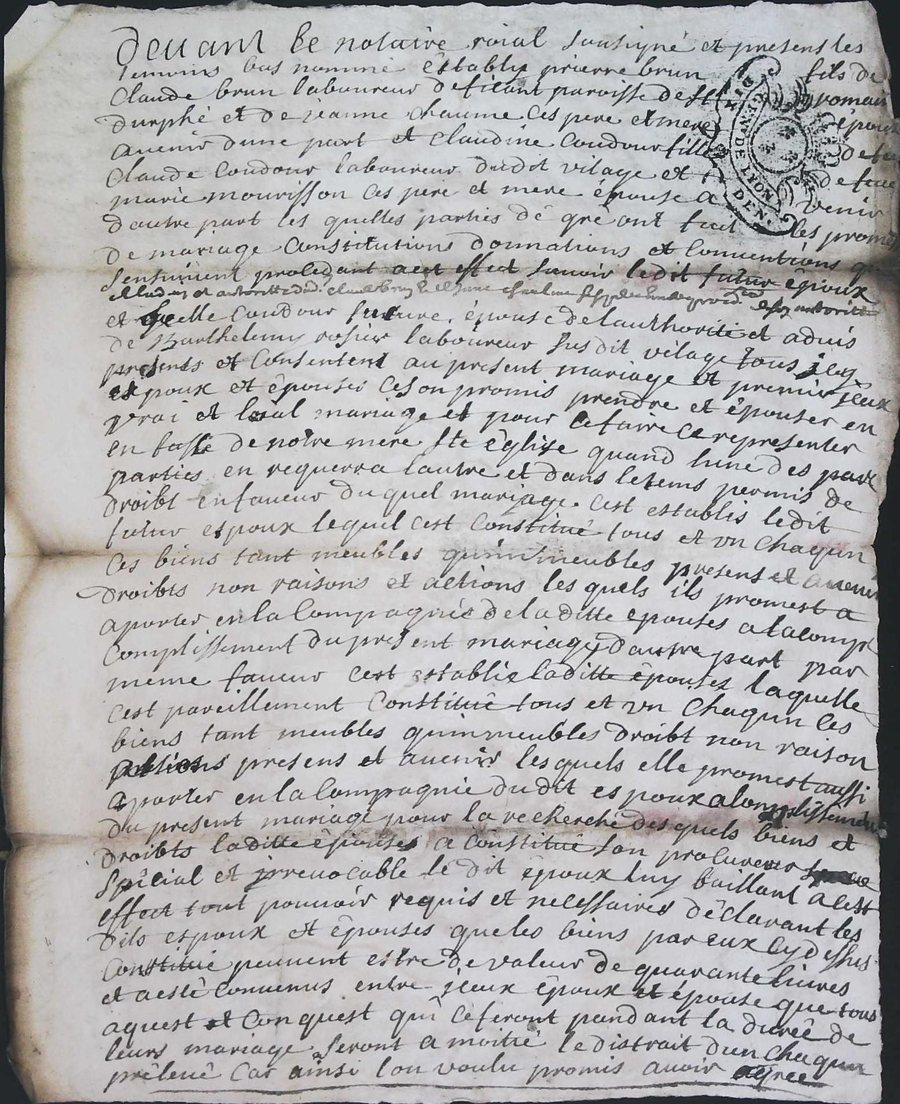 devant le notaire roial sousigné et presens les
temoins bas nommé êstablis pierre brun fils de
Claude brun laboureur de ficant paroisse de St romain
durphé et de jeanne chaume ces pere et mere êpoux
avenir dune part et Claudine Coudour fille de feu
Claude Coudour laboureur dudit vilage et de feue
marie mourisson ces pere et mere êpouse a venir
dautre part les quelles parties dê grê ont fait les promes
de mariage Constitutions donnations et Conventions qui
sensuivent procedant a cet effect savoir ledit futur êpoux
de son autorité
et icelle Coudour future êpouse de lauthorité et advis
de Barthelemy rosier laboureur susdit vilage tous icy
presents et Consentent au present mariage et premier jeux
espoux et êpouses ces on promis prendre et êpouser en
vrai et loial mariage et pour ce faire ce representer
en fasse de notre mere Ste êglise quand lune des part
parties en requerra lautre et dans le tems permis de
droibt en faveur du quel mariage cest establis ledit
futur espoux lequel cest Constitué tous et vn chaqun
ces biens tant meubles quimmeubles presens et avenir
droibts non raisons et actions les quels ils promest a
aporter en la Compagniê de laditte epouses a lacomp
Complissement du present mariage dautre part par
meme faveur cest establie laditte êpouses laquelle
cest pareillement Constitué tous et vn chaqun ces
biens tant meubles quimmeubles droibt non raison
actions presens et avenir les quels elle promest aussi
aporter en la Compagnie du dit espoux alomplissement
du present mariage pour la recherche des quels biens et
droibts laditte êpouses a Constitué son procureur
spêcial et jrrevocable le dit êpoux luy baillant a cest
effect tout pouvoir requis et necessaires dêclarant les
dits espoux et êpouses que les biens par eux cy dessus
Constitué peuvent estre de valeur de quarante livres
et a estê Convenus entre jeux êpoux et êpouse que tous
aquest et Conquest qui ce feront pandant la durée de
leurs mariage seront a moitié le distrait dun chaqun
prelevé Car ainsi lon voulu promis avoir agreé
GEN DE LYON
DEN.